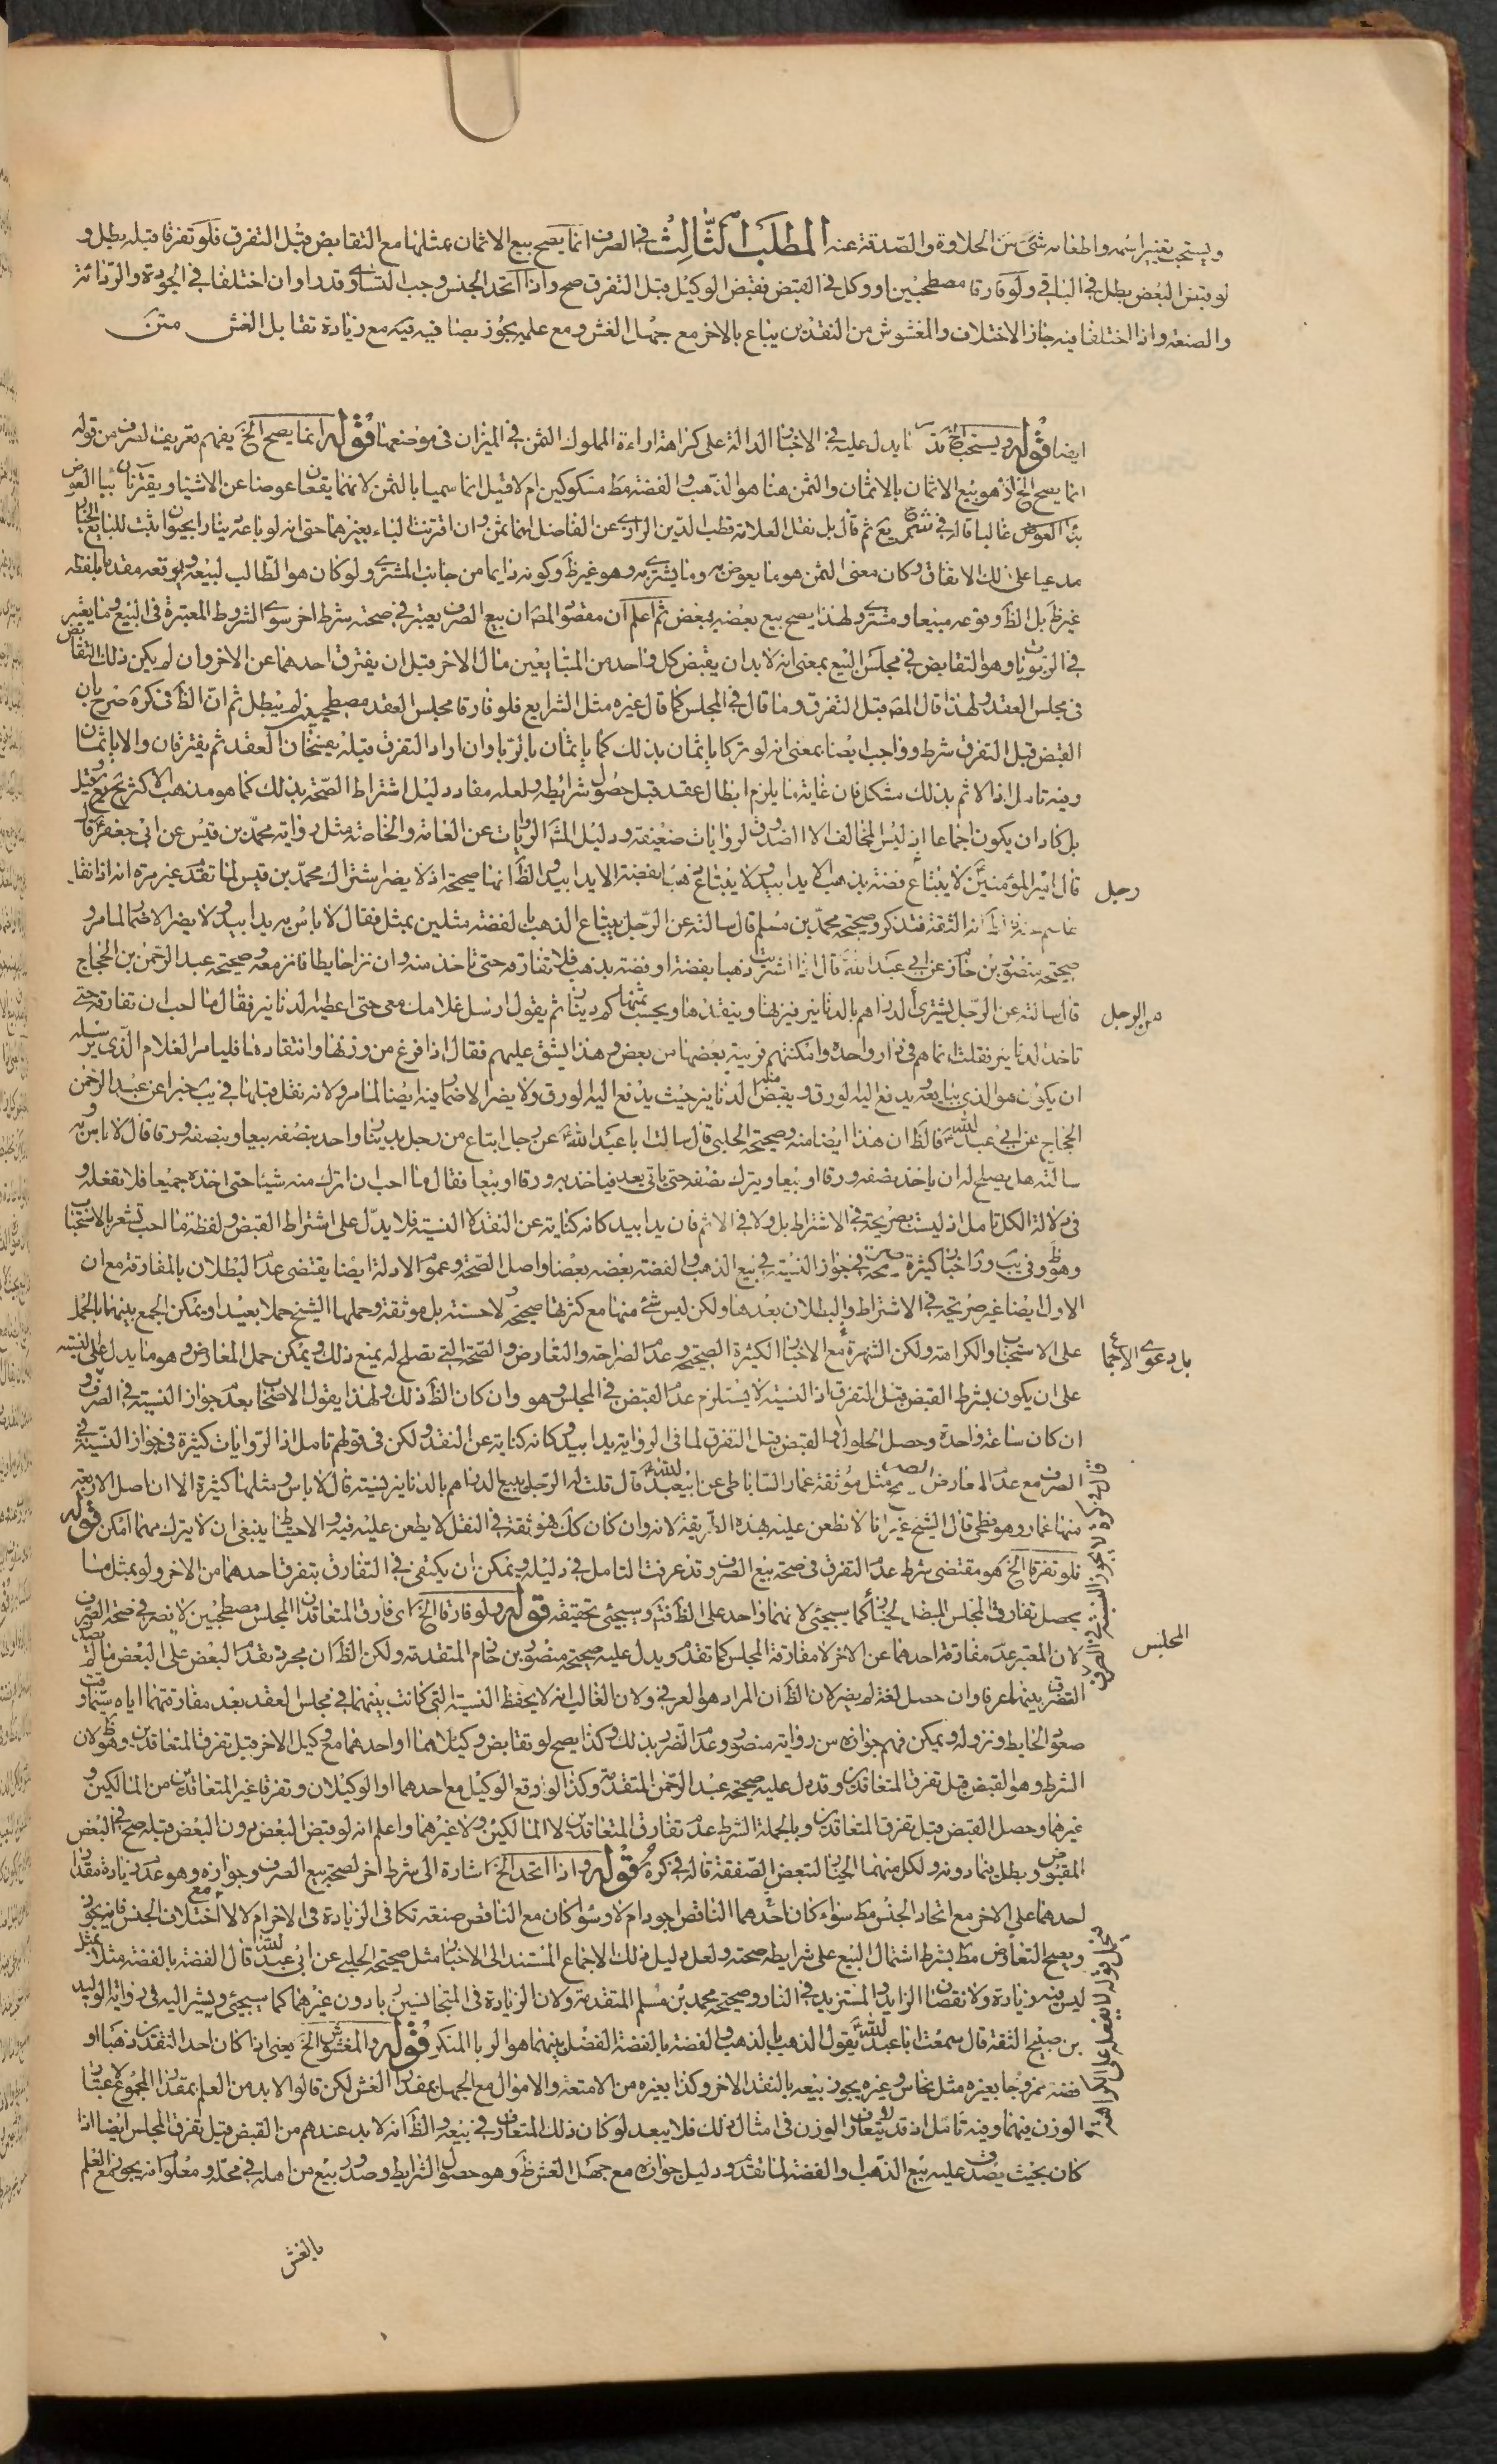 ويستحب تغيير اسمه واطعامه شئ من الحلاوة والصدقة عنه المطلب الثالث في الصرف انما يصح بيع الاثمان بمثلها مع التقابض قبل التفرق فلو تفرقا قبله بطل و
لو قبض البعض بطل في الباقي ولو فارقا مصطحبين او وكل في القبض فقبض الوكيل قبل التفرق صح واذا اتحد الجنس وجب التساوى قدرا وان اختلفا في الجودة والردائة
والصنعة واذا اختلفا فيه جاز الاختلاف والمغشوش من النقدين يباع بالاخر مع جهل الغش ومع علمه يجوز بصافيه مع زيادة تقابل الغش متن
ايضا قوله ويستحب الخ قد ما يدل عليه في الاخبار الدالة على كراهة اراءة المملوك الثمن في الميزان في موضعها قوله انما يصح الخ يفهم تعريف الصرف من قوله
انما يصح الخ اذ هو بيع الاثمان بالاثمان والثمن هنا هو الذهب والفضة مط مسكوكين ام لا قيل انما سميا بالثمن لانهما يقعان عوضا عن الاشياء ويقترنان بباء العوض
غالبا قاله في شرح يع ثم قال بل نقل العلامة قطب الدين الرازى عن الفاضل انهما ثمن وان اقترنت الباء بغيرهما حتى انه لو باعه دينارا بحيوان ثبت للبايع الخيار
مدعيا على ذلك الاتفاق وكان معنى الثمن هو ما يعوض به وما يشترى به وهو غير ظ وكونه دايما من جانب المشترى ولو كان هو الطالب لبيعه ويوقعه مقدما بلفظه
غير ظ بل الظ وقوعه مبيعا ومشترى ولهذا يصح بيع بعضه ببعض ثم اعلم ان مقصود المص ان بيع الصرف يعتبر في صحته شرط اخر سوى الشروط المعتبرة في البيع وما يعتبر
في الربويا وهو التقابض في مجلس البيع بمعنى انه لا بد ان يقبض كل واحد من المتبايعين مال الاخر قبل ان يفترق احدهما عن الاخر وان لم يكن ذلك التقابض
في مجلس العقد ولهذا قال المص قبل التفرق وما قال في المجلس كما قال غيره مثل الشرايع فلو فارقا مجلس العقد مصطحبين لم يبطل ثم ان الظ في كره صرح بان
القبض قبل التفرق شرط وواجب ايضا بمعنى انه لو تركا ياثمان بذلك كما ياثمان بالربا وان اراد التفرق قبله يفسخان العقد ثم يفترقان والا ياثمان
وفيه تامل اذ الاثم بذلك مشكل فان غاية ما يلزم ابطال عقد قبل حصول شرايطه ولعله مفاد دليل اشتراط الصحة بذلك كما هو مذهب الاكثر
بل كاد ان يكون اجماعا اذ ليس المخالف الا الصدوق لروايات ضعيفة ودليل المش الروايات عن العامة والخاصة مثل رواية محمد بن قيس عن ابي جعفر قال
قال امير المؤمنين لا يبتاع فضة بذهب الا يدا بيد ولا يبتاع ذهبا بفضة الا يدا بيد والظ انها صحيحة اذ لا يضر اشتراك محمد بن قيس لما تقدم غير مرة انه اذا نقل
عاصم عنه فالظ انه الثقة فتذكر وصحيحة محمد بن مسلم قال سالته عن الرجل يبتاع الذهب بالفضة مثلين بمثل فقال لا باس به يدا بيد ولا يضر الاضمار لما مر و
صحيحة منصور بن حازم عن ابي عبد الله قال اذا اشتريت ذهبا بفضة او فضة بذهب فلا تفارقه حتى تاخذ منه وان نزا حايطا فانز معه وصحيحة عبد الرحمن بن الحجاج
قال سالته عن الرجل يشترى الدراهم بالدنانير فيزنها وينقدها ويحسب ثمنها كم دينارا ثم يقول ارسل غلامك معى حتى اعطيه الدنانير فقال ما احب ان تفارقه حتى
تاخذ الدنانير فقلت انما هم في دار واحدة وامكنتهم قريبة بعضها من بعض وهذا يشق عليهم فقال اذا فرغ من وزنها وانتقادها فليامر الغلام الذى يرسله
ان يكون هو الذى يبايعه ويدفع اليه الورق ويقبض منه الدنانير حيث يدفع اليه الورق ولا يضر الاضمار فيه ايضا لما مر ولانه نقل قبلها في يب خبرا عن عبد الرحمن
الحجاج عن ابي عبد الله فالظ ان هذا ايضا منه وصحيحة الحلبي قال سالت ابا عبد الله عن رجل ابتاع من رجل بدينار واحد بنصفه بيعا وبنصفه ورقا قال لا باس به
سالته هل يصلح له ان ياخذ بنصفه ورقا او بيعا ويترك نصفه حتى ياتى بعد فياخذ به ورقا او بيعا فقال ما احب ان اترك منه شيئا حتى اخذه جميعا فلا تفعله و
في دلالة الكل تامل اذ ليست بصريحة في الاشتراط بل ولا في الاثم فان يدا بيد كانه كناية عن النقد لا النسية فلا يدل على اشتراط القبض ولفظة ما احب تشعر بالاستحباب
وهو ظ وفي يب ور اخبار كثيرة في جواز النسية في بيع الذهب والفضة بعضه بعضا واصل الصحة وعموم الادلة ايضا يقتضى عدم البطلان بالمفارقة مع ان
الاول ايضا غير صريحة في الاشتراط والبطلان بعدها ولكن ليس شئ منها مع كثرتها صحيحة ولا حسنة بل موثقة وحملها الشيخ حملا بعيدا ويمكن الجمع بينهما بالحمل
على الاستحباب والكراهة ولكن الشهرة مع الاخبار الكثيرة الصحيحة وعدم الصراحة والتعارض والصحة التي تصلح له يمنع ذلك ويمكن حمل المعارض وهو ما يدل على النسية
على ان يكون بشرط القبض قبل التفرق اذ النسية لا يستلزم عدم القبض في المجلس وهو وان كان الظ ذلك ولهذا يقول الاصحاب بعدم جواز النسية في الصرف و
ان كان ساعة واحدة وحصل الحلول والقبض قبل التفرق لما في الرواية يدا بيد وكانه كناية عن النقد ولكن في قولهم تامل اذ الروايات كثيرة في جواز النسية في
الصرف مع عدم المعارض مثل موثقة عمار الساباطى عن ابيعبد الله قال قلت له الرجل يبيع الدراهم بالدنانير نسية قال لا باس ومثلها كثيرة الا ان اصل الاربعة
منها عمار وهو فطحى قال الشيخ غير انا لا نطعن عليه بهذه الطريقة لانه وان كان كك فهو ثقة في النقل لا يطعن عليه فيه والاحتياط ينبغى ان لا يترك مهما امكن قوله
فلو تفرقا الخ هو مقتضى شرط عدم التفرق في صحة بيع الصرف وقد عرفت التامل في دليله ويمكن ان يكتفى في التفارق بتفرق احدهما من الاخر ولو بمثل ما
يحصل تفارق المجلس المبطل لخيار كما سيجئى لانهما واحد على الظ فتم وسيجئى تحقيقه قوله ولو فارقا الخ اى فارق المتعاقدان المجلس مصطحبين لا نصر في صحة الصرف
لان المعتبر عدم مفارقة احدهما عن الاخر لا مفارقة المجلس كما تقدم ويدل عليه صحيحة منصور بن حازم المتقدمة ولكن الظ ان مجرد تقدم البعض على البعض ما لم يصدق
التفرق بينهما عرفا وان حصل لغة لم يضر لان الظ ان المراد هو العرفي ولان الغالب انه لا يحفظ النسبة التي كانت بينهما في مجلس العقد بعد مفارقتهما اياه سيما وقت
صعود الحايط ونزوله ويمكن فهم جوازه من رواية منصور وعدم الضرر بذلك وكذا يصح لو تقابض وكيلاهما او احدهما مع وكيل الاخر قبل تفرق المتعاقدين وهو ظ لان
الشرط وهو القبض قبل تفرق المتعاقدين وقد دل عليه صحيحة عبد الرحمن المتقدمة وكذا لو وقع الوكيل مع احدهما او الوكيلان وتفرقا غير المتعاقدين من المالكين و
غيرهما وحصل القبض قبل تفرق المتعاقدين وبالجملة الشرط عدم تفارق المتعاقدين لا المالكين ولا غيرهما واعلم انه لو قبض البعض دون البعض قبله صح في البعض
المقبوض وبطل فيما دونه ولكل منهما الخيار لتبعض الصفقة قاله في كره قوله واذا اتحد الخ اشارة الى شرط اخر لصحة بيع الصرف وجوازه وهو عدم زيادة مقدار
احدهما على الاخر مع اتحاد الجنس مط سواء كان احدهما الناقص اجود ام لا وسواء كان مع الناقص صنعة تكافى الزيادة في الاخر ام لا لا مع اختلاف الجنس فانه يجوز
ويصح التعاوض مط بشرط اشتمال البيع على شرايطه صحته ولعل دليل ذلك الاجماع المستند الى الاخبار مثل صحيحة الحلبي عن ابي عبد الله قال الفضة بالفضة مثلا بمثل
ليس فيه زيادة ولا نقصان الزايد والمستزيد في النار وصحيحة محمد بن مسلم المتقدمة ولان الزيادة في المتجانسين ربا دون غيرهما كما سيجئى ويشير اليه في رواية الوليد
بن صبيح الثقة قال سمعت ابا عبد الله يقول الذهب بالذهب والفضة بالفضة الفضل بينهما هو الربا المنكر قوله والمغشوش الخ يعنى اذا كان احد النقدين ذهبا او
فضة ممزوجا بغيره مثل نحاس وغيره يجوز بيعه بالنقد الاخر وكذا بغيره من الامتعة والاموال مع الجهل بمقدار الغش لكن قالوا لا بد من العلم بمقدار المجموع لاعتبار
الوزن فيهما وفيه تامل اذ قد يتعارف الوزن في امثال ذلك فلا يبعد لو كان ذلك المتعارف في بيعه والظ انه لا بد عندهم من القبض قبل تفرق المجلس ايضا اذا
كان بحيث يصدق عليه بيع الذهب والفضة لما تقدم ودليل جوازه مع جهل الغش ظ وهو حصول الشرايط وصدور بيع من اهله في محله ومعلوم انه يجوز مع العلم
رجل
من الرجل
بل دعوى الاجماع
المجلس
بالغش